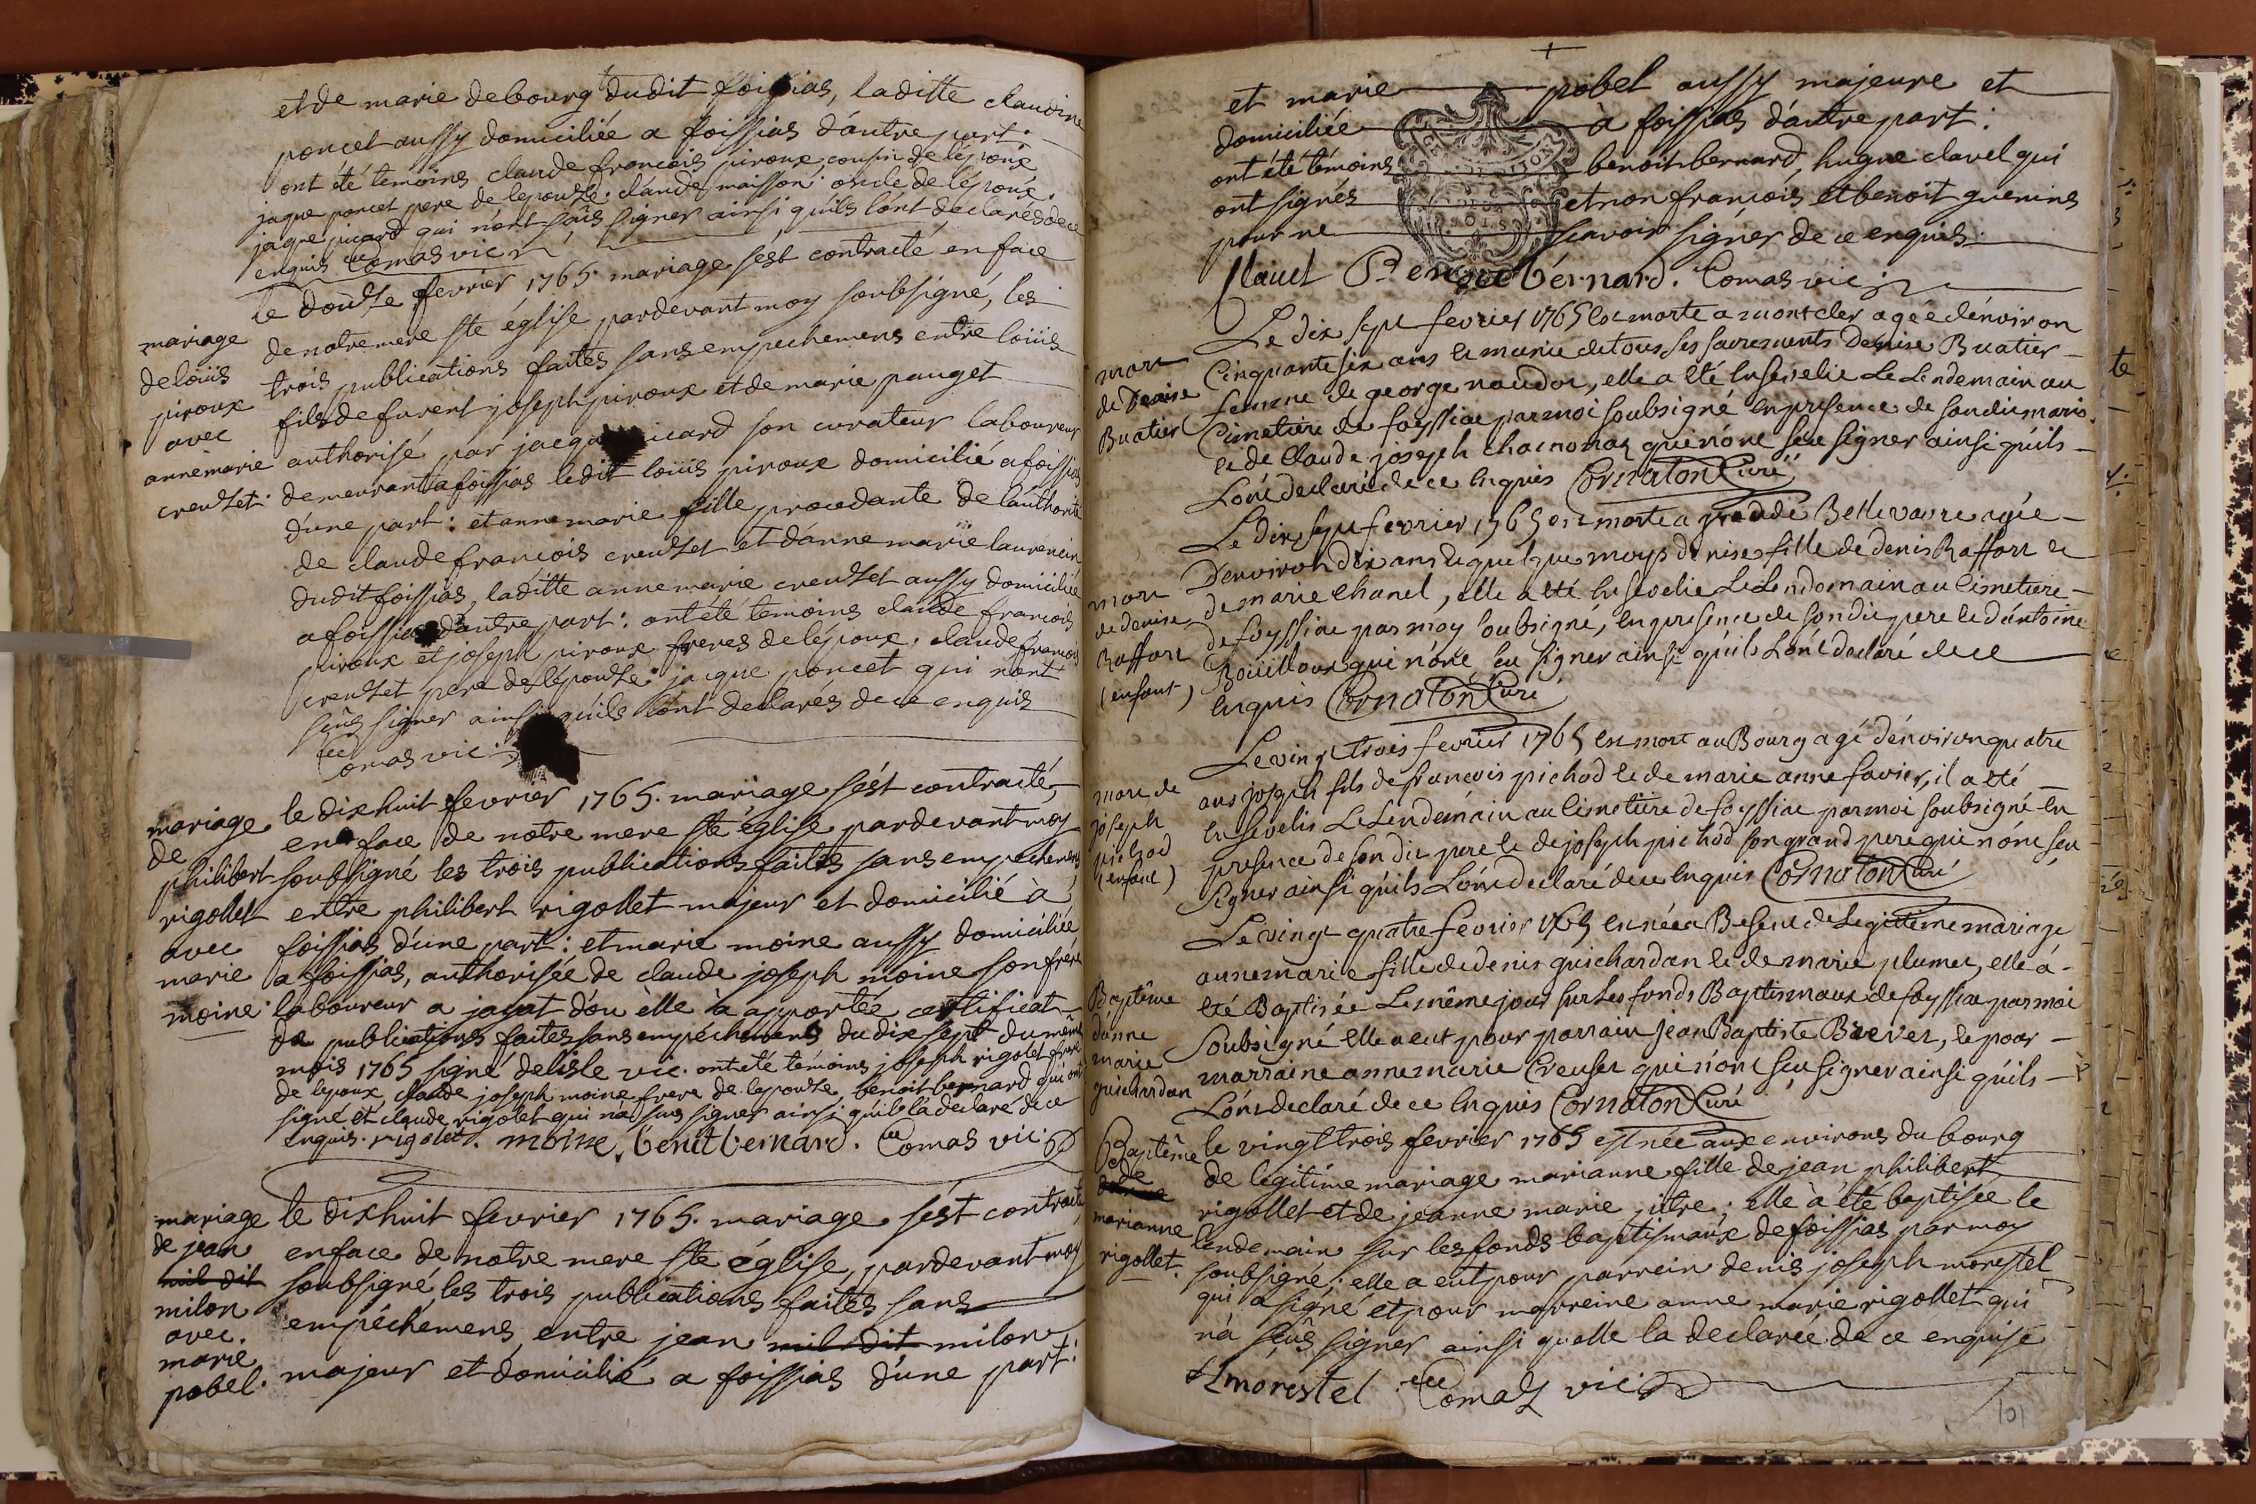 et de marie debourg dudit foissias, laditte claudine
poncet aussy domiciliée a foissias d'autre part.
ont été temoins claude françois piroux cousin de l'époux
jaque poncet pere de lepouse. claude maisson oncle de l'époux.
jaque picard qui n'ont sçûs signer ainsi quils l'ont declarés de ce
enquis Comas vic
mariage
de loüis
piroux
avec
anne marie
creuset.
le douse fevrier 1765. mariage s'est contracté en face
de notre mere ste église pardevant moy soubsigné, les
trois publications faites sans empechemens entre loüis
fils de furent joseph piroux et de marie pauget
authorisé par jacque picard son curateur laboureur
demeurant a foissias ledit loüis piroux domicilié a foissias
d'une part: et anne marie fille procedante de l'authorité
de claude françois creuset et d'anne marie laurencin
dudit foissias, laditte anne marie creuset aussy domiciliée
a foissias d'autre part: ont été temoins claude françois
piroux et joseph piroux freres de l'époux. claude françois
creuset pere de l'épouse. jaque poncet qui n'ont
sçûs signer ainsi qu'ils l'ont declarés de ce enquis
Comas vic.
mariage
de
philibert
rigollet
avec
marie
moine.
le dixhuit fevrier 1765. mariage s'est contracté,
en face de notre mere ste église pardevant moy
soubsigné les trois publications faites sans empechemens
entre philibert rigollet majeur et domicilié à
foissias d'une part: et marie moine aussy domiciliée
a foissias, authorisée de claude joseph moine son frére
laboureur a jayat d'ou èlle à apportée certificat
de publications faites sans empéchemens du dix sept du même
mois 1765 signé delisle vic. ont été témoins joseph rigolet frere
de lepoux, claude joseph moine frere de lepouse, benoit bernard qui ont
signé et claude rigolet qui n'a sçus signer ainsi quil la declaré de ce
enquis. rigolet. moine. benoit bernard. Comas vic.
mariage
de jean
mil dit
milon
avec.
marie
pobel.
le dixhuit fevrier 1765. mariage s'est contracté
en face de notre mere ste église, pardevant moy
soubsigné, les trois publications faites sans
empéchémens, entre jean mil dit milon
majeur et domicilié a foissias d'une part:
et marie pobel aussy majeure et
domiciliée à foissias d'autre part:
ont été témoins benoit bernard, hugue clavel qui
ont signés et non françois et benoit guenins
pour ne scavoir signer de ce enquis.
Clavel benoit bernard. Comas vic.
mort
de Denise
Buatier
Le dix sept fevrier 1765 est morte a montcler agée d'environ
Cinquante six ans et munie de tous ses sacrements Denise Buatier
femme de george naudot, elle a été Ensevelie Le Lendemain au
Cimetiere de foyssiac par moi soubsigné en presence de son dit marit
et de Claude joseph chacnomaz qui n'ont seu signer ainsi qu'ils
L'ont declaré de ce Enquis Cornaton Curé
mort
de denise
Raffort
(enfant)
Le dix sept fevrier 1765 est morte a Bellevavre agée
D'environ dix ans et quelque moys denise fille de denis Raffort et
de marie Chanel, elle a été Ensevelie Le Lendemain au Cimetiere
de foyssiac par moy soubsigné, en presence de son dit pere et d'antoine
Boüilloux qui n'ont seu signer ainsi qu'ils L'ont declaré de ce
Enquis Cornaton Curé
mort de
joseph
pichod
(enfant)
Le vingt trois fevrier 1765 est mort au Bourg agé d'environ quatre
ans joseph fils de françois pichod et de marie anne favier, il a été
Ensevelis Le Lendemain au Cimetiere de foyssiac par moi soubsigné en
presence de son dit pere et de joseph pichod son grand pere qui n'ont seu
Signer ainsi qu'ils L'ont declaré de ce Enquis Cornaton Curé
Baptême
d'anne
marie
guichardan
Le vingt quatre fevrier 1765 est née a Beseme de Legitime mariage
anne marie fille de denis guichardan et de marie plumet, elle á
été Baptisée Le même jour sur Les fonds Baptismaux de foyssiac par moi
Soubsigné elle a eut pour parrain jean Baptiste Brevet, et pour
marraine anne marie Creuset qui n'ont seu signer ainsi qu'ils
L'ont declaré de ce Enquis Cornaton Curé
Baptême
de
marianne
rigollet.
le vingt trois fevrier 1765 est née aux environs du bourg
de légitime mariage marianne fille de jean philibert
rigollet et de jeanne marie pitre; elle à été baptisée le
lendemain sur les fonds baptismaux de foissias par moy
soubsigné; elle a eut pour parrein denis joseph morestel
qui a signé et pour marreine anne marie rigollet qui
n'a sçûs signer ainsi quelle la declarée de ce enquise
morestel Comas vic.
101